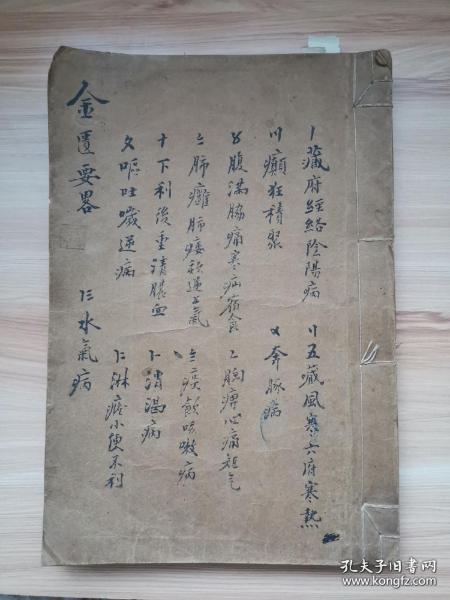 〡藏府經絡陰陽病
〢五藏風寒六府寒熱
〣癲狂積聚
〤奔豚病
〥腹滿脇痛寒疝宿食
〦胸痺心痛短气
〧肺癰肺痿欬逆上氣
〨痰飲咳嗽病
十下利後重清膿血
消渴病
〩嘔吐噦逆病
淋病小便不利
水氣病
金匱要畧
孔夫子旧书网
www.kongfz.com